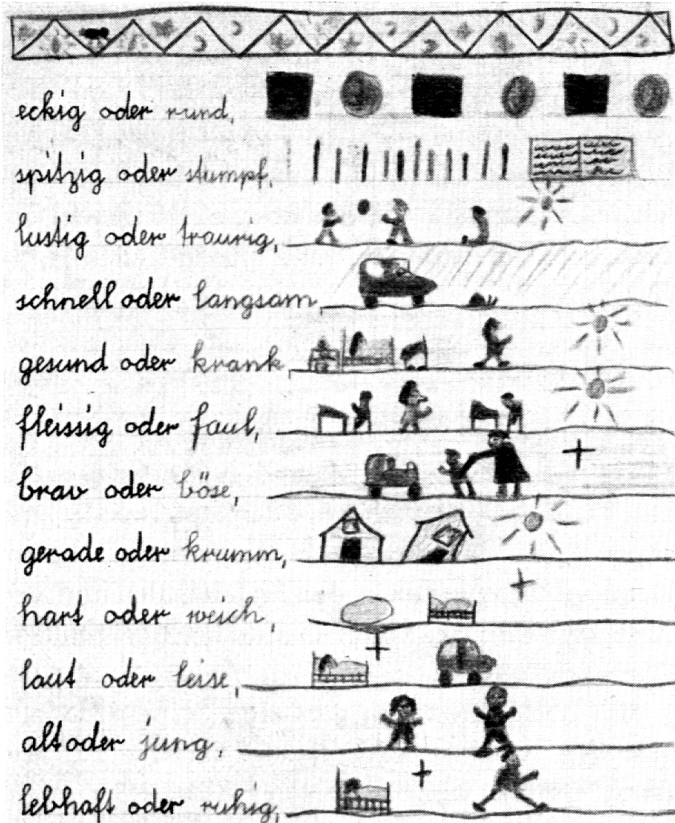 eckig oder rund,
spitzig oder stumpf,
lustig oder traurig,
schnell oder langsam,
gesund oder krank,
fleissig oder faul,
brav oder böse,
gerade oder krumm,
hart oder weich,
laut oder leise,
alt oder jung,
lebhaft oder ruhig,